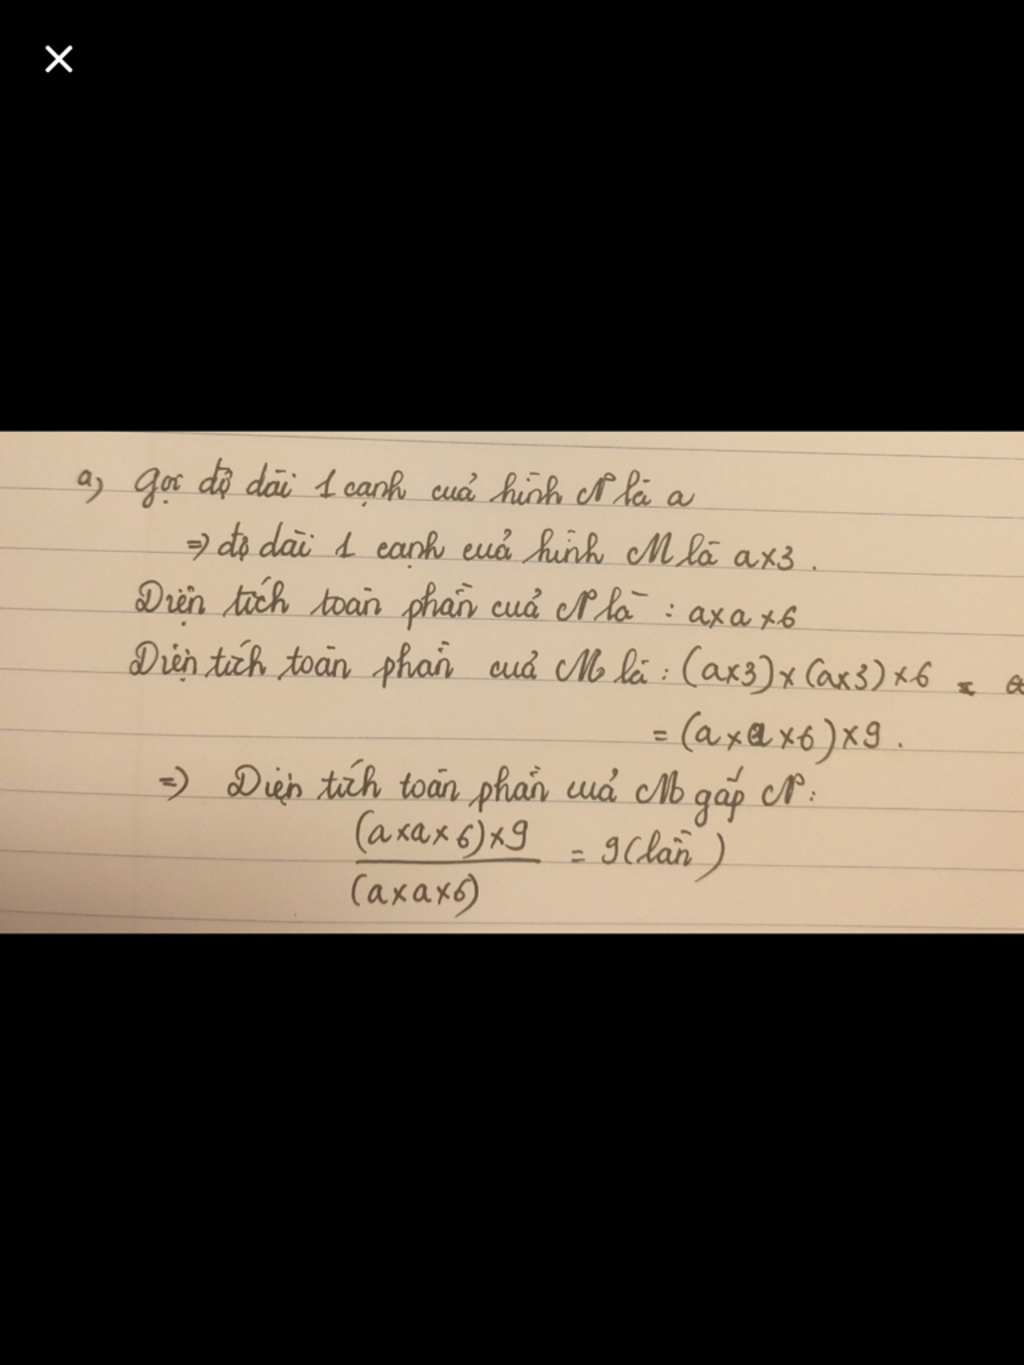 a) Gọi độ dài 1 cạnh của hình N là a
=> độ dài 1 cạnh của hình M là a×3.
Diện tích toàn phần của N là : a×a×6
Diện tích toàn phần của M là : (a×3)×(a×3)×6 =
= (a×a×6)×9.
=> Diện tích toàn phần của M gấp N :
(a×a×6)×9
= 9 (lần)
(a×a×6)